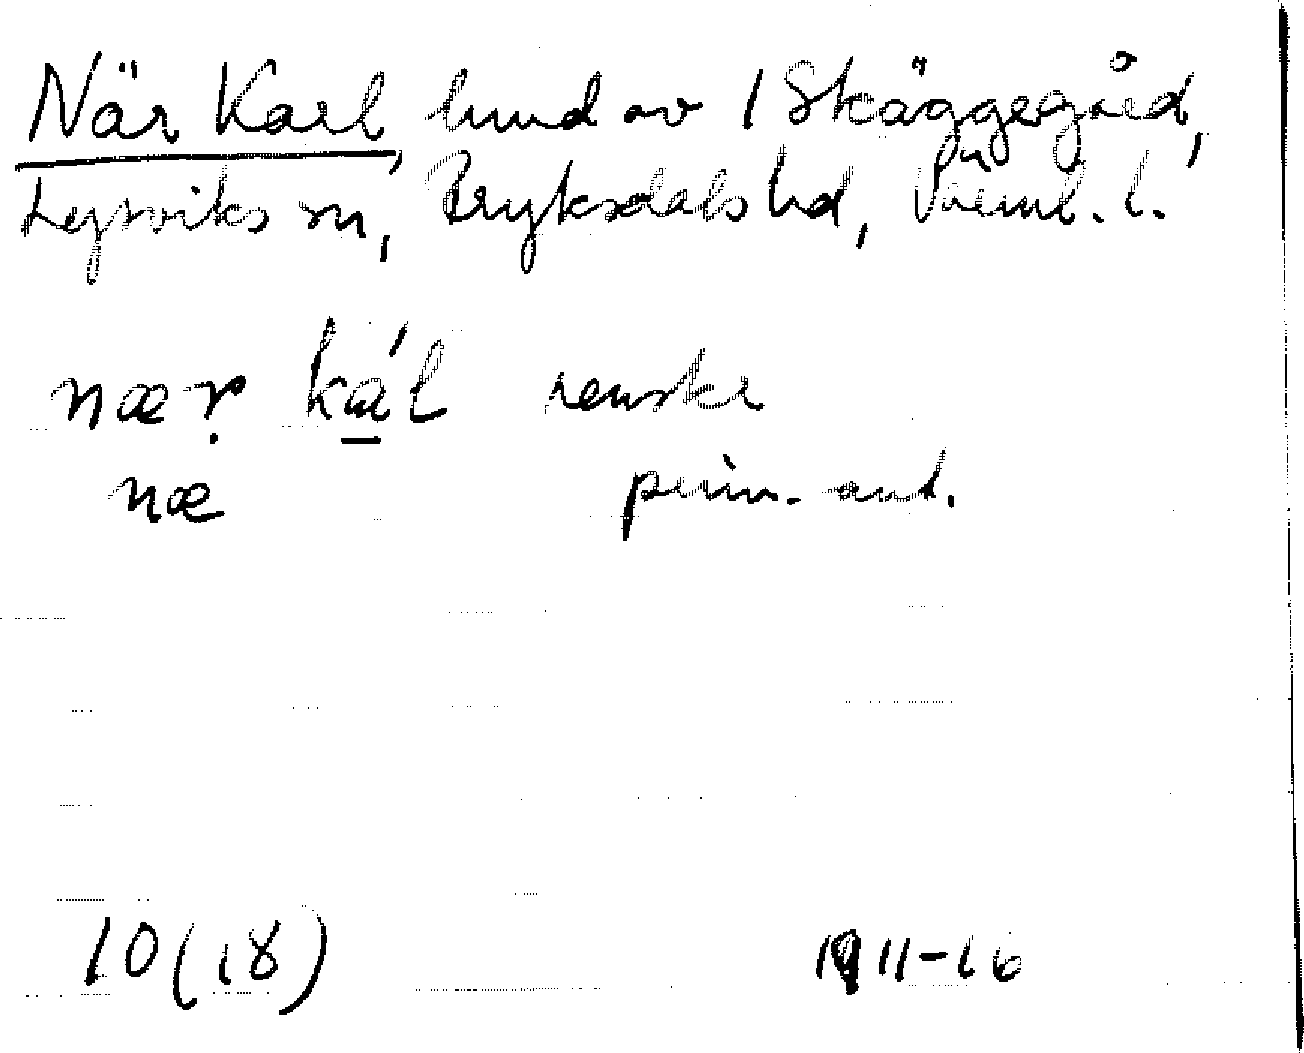 När Karl, hmd av 1 Skäggegård,
Lysviks sn, Fryksdals hd, Värml. l.
nær ká̱l senske
næ prim. ant.
10 (18) 1911-16